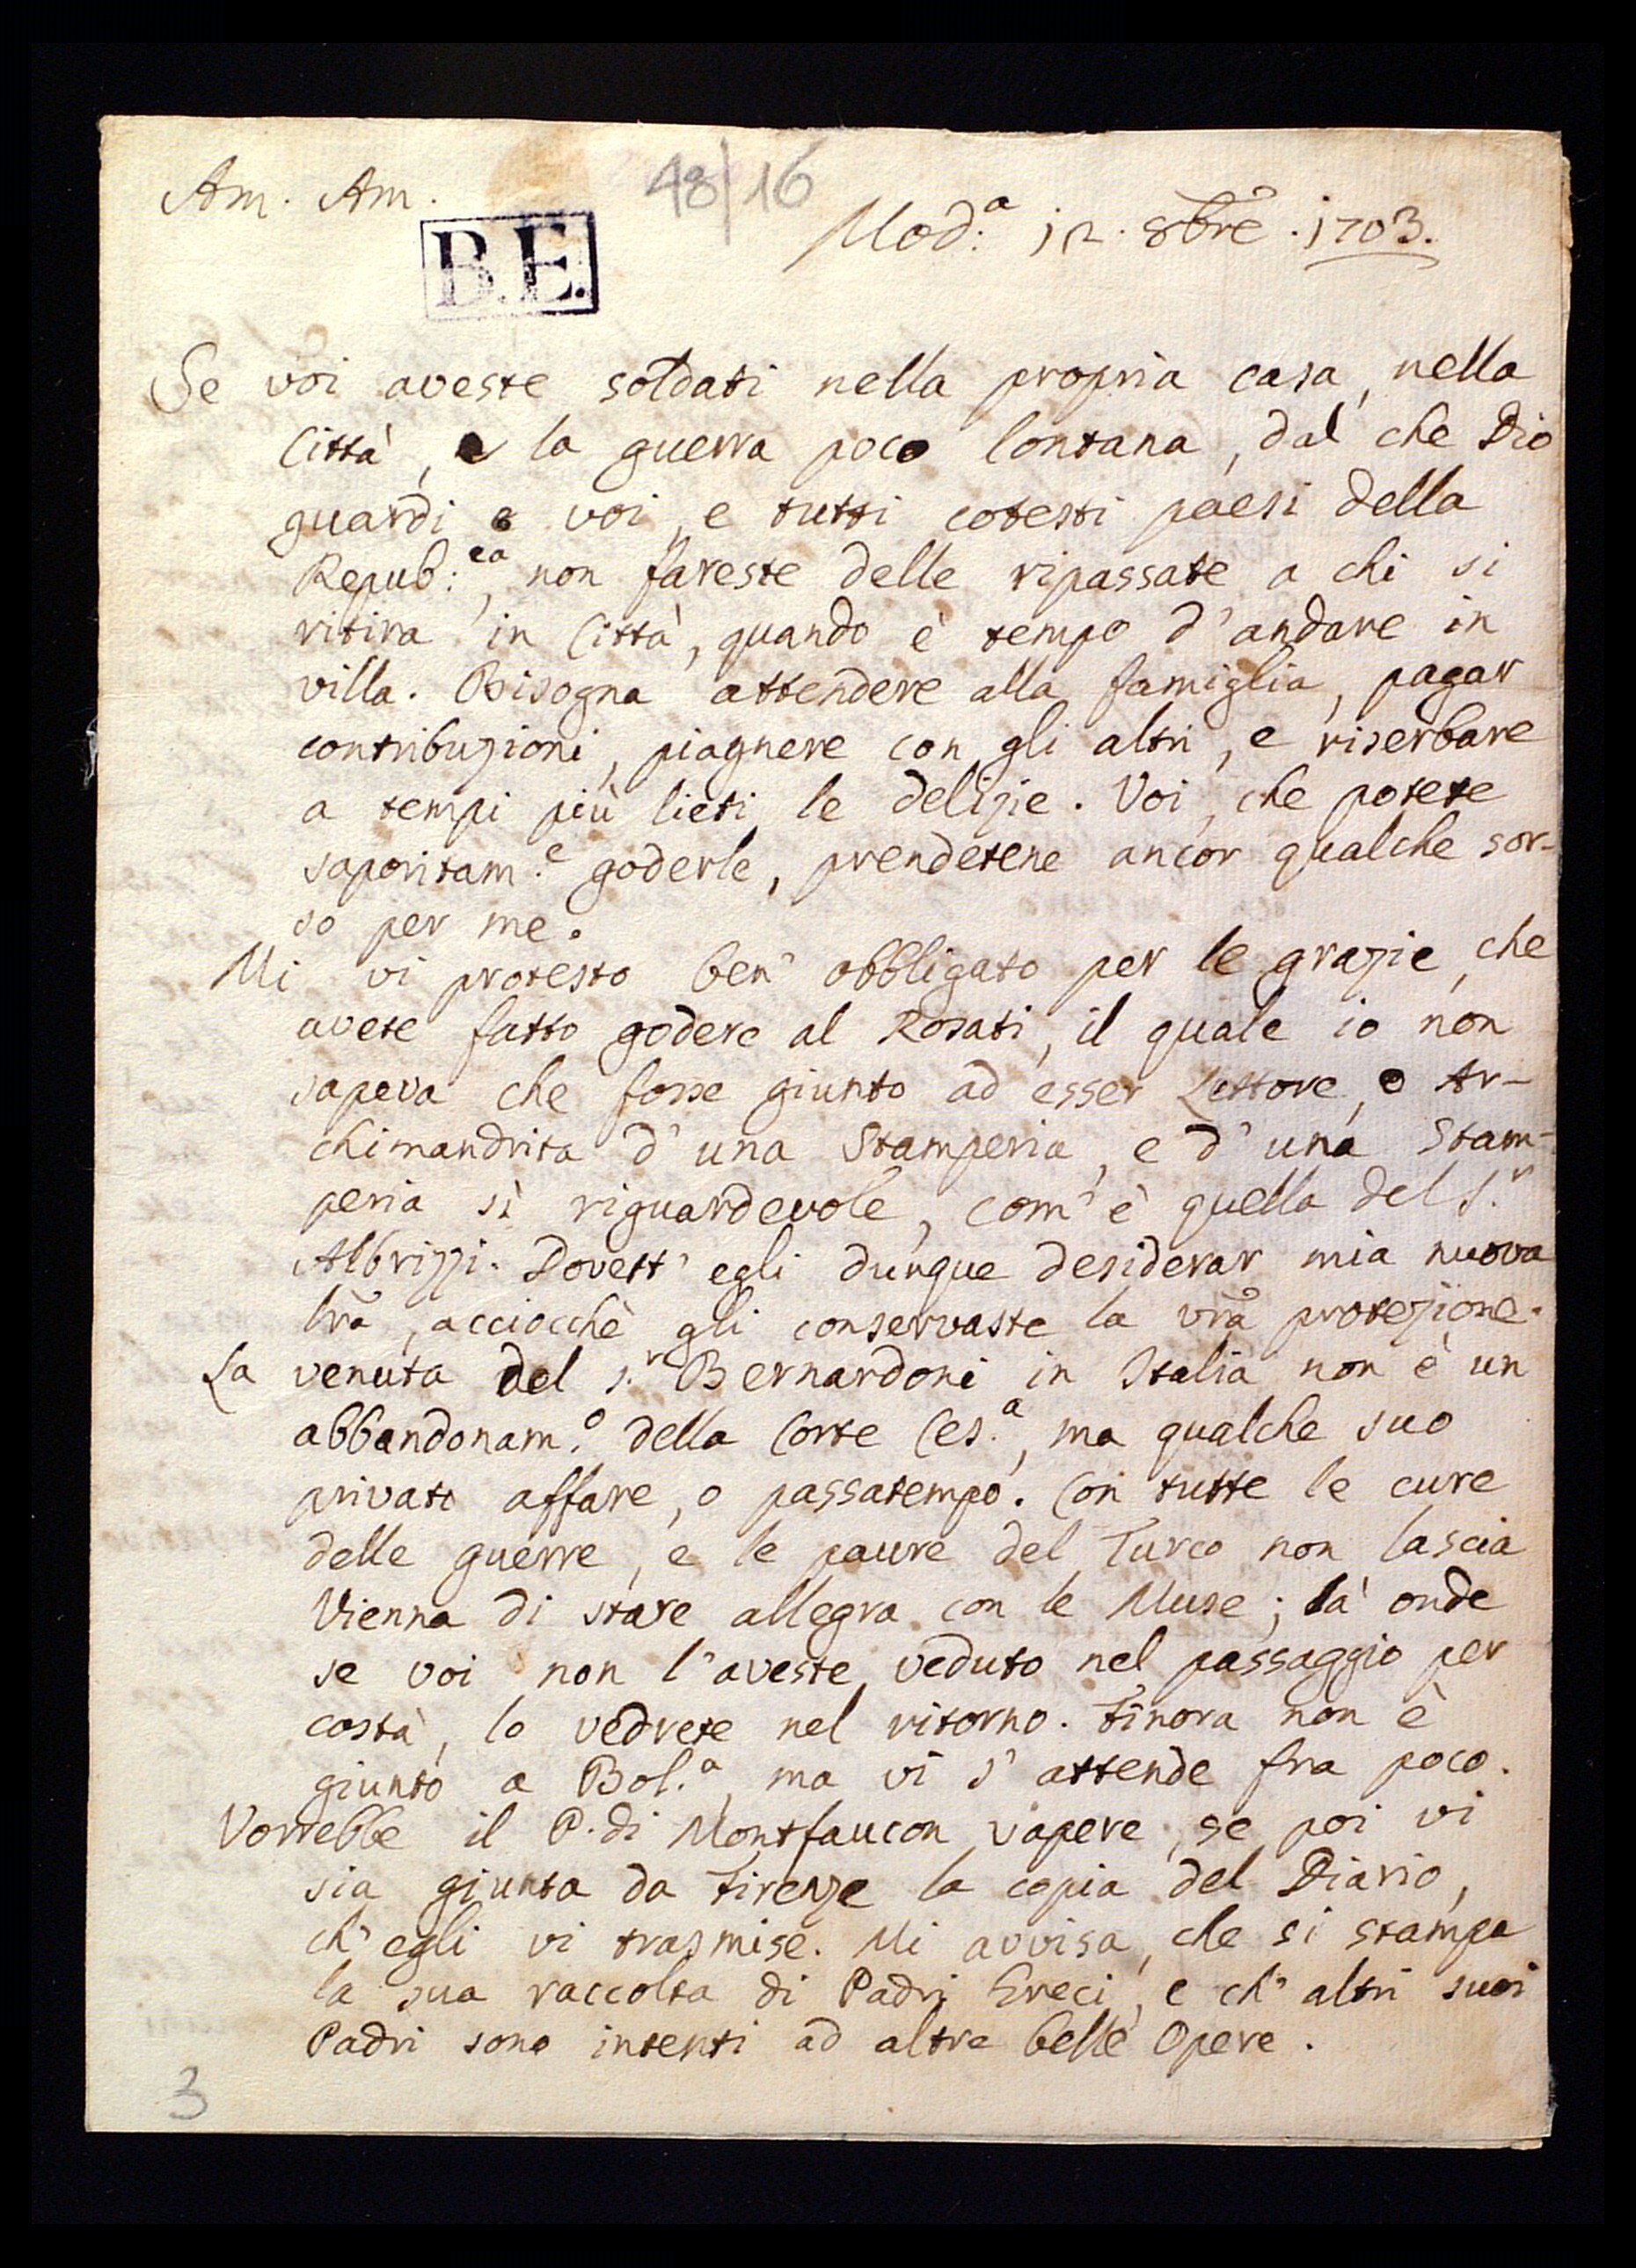 Am. Am.
48/16
Mod:ª 12. 8bre. 1703.
B.E.
Se voi aveste soldati nella propria casa, nella
Città, e la guerra poco lontana, dal che Dio
guardi e voi, e tutti cotesti paesi della
Repub:ca, non fareste delle ripassate a chi si
ritira in Città, quando è tempo d'andare in
villa. Bisogna attendere alla famiglia, pagar
contribuzioni, piagnere con gli altri, e riserbare
a tempi più lieti le delizie. Voi, che potete
saporitam.e goderle, prendetene ancor qualche sor-
so per me.
Mi vi protesto ben' obbligato per le grazie, che
avete fatto godere al Rosati, il quale io non
sapeva che fosse giunto ad esser Lettore, o Ar-
chimandrita d'una Stamperia, e d'una Stam-
peria sì riguardevole, com'è quella del S.r
Albrizzi. Dovett'egli dunque desiderar mia nuova
lrã, acciocchè gli conservaste la vrã protezione.
La venuta del S.r Bernardoni in Italia non è un
abbandonam.o della Corte Ces.a, ma qualche suo
privato affare, o passatempo. Con tutte le cure
delle guerre, e le paure del Turco non lascia
Vienna di stare allegra con le Muse; là onde
se voi non l'aveste veduto nel passaggio per
costà, lo vedrete nel ritorno. Finora non è
giunto a Bol.a, ma vi s'attende fra poco.
Vorrebbe il P. di Montfaucon sapere, se poi vi
sia giunta da Firenze la copia del Diario,
ch'egli vi trasmise. Mi avvisa, che si stampa
la sua raccolta di Padri Greci, e ch'altri suoi
Padri sono intenti ad altre belle Opere.
3